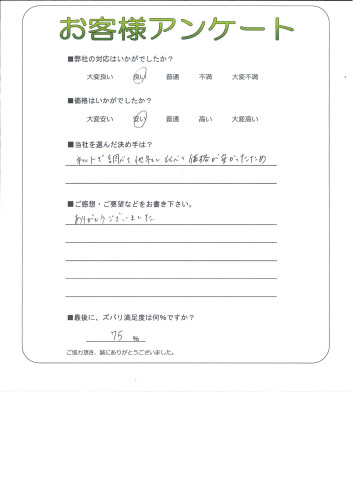 お客様アンケート
■弊社の対応はいかがでしたか？
大変良い 良い 普通 不満 大変不満
■価格はいかがでしたか？
大変安い 安い 普通 高い 大変高い
■当社を選んだ決め手は？
ネットで調べて他社と比べて価格が安かったため
■ご感想・ご要望などをお書き下さい。
ありがとうございました
■最後に、ズバリ満足度は何％ですか？
75 ％
ご協力頂き、誠にありがとうございました。